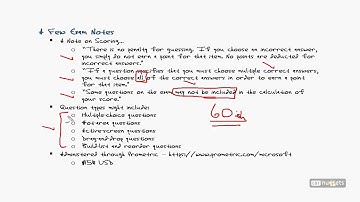 A Few Exam Notes
A Note on Scoring...
"There is no penalty for guessing. If you choose an incorrect answer,
you simply do not earn a point for that item. No points are deducted for
incorrect answers."
"If a question specifies that you must choose multiple correct answers,
you must choose all of the correct answers in order to earn a point
for that item."
"Some questions on the exam may not be included in the calculation of
your score."
Question types might include:
Multiple choice questions
Hot-area questions
Active-screen questions
Drag-and-drop questions
Build-list and reorder questions
Administered through Prometric - https://www.prometric.com/microsoft
USD
cbt nuggets